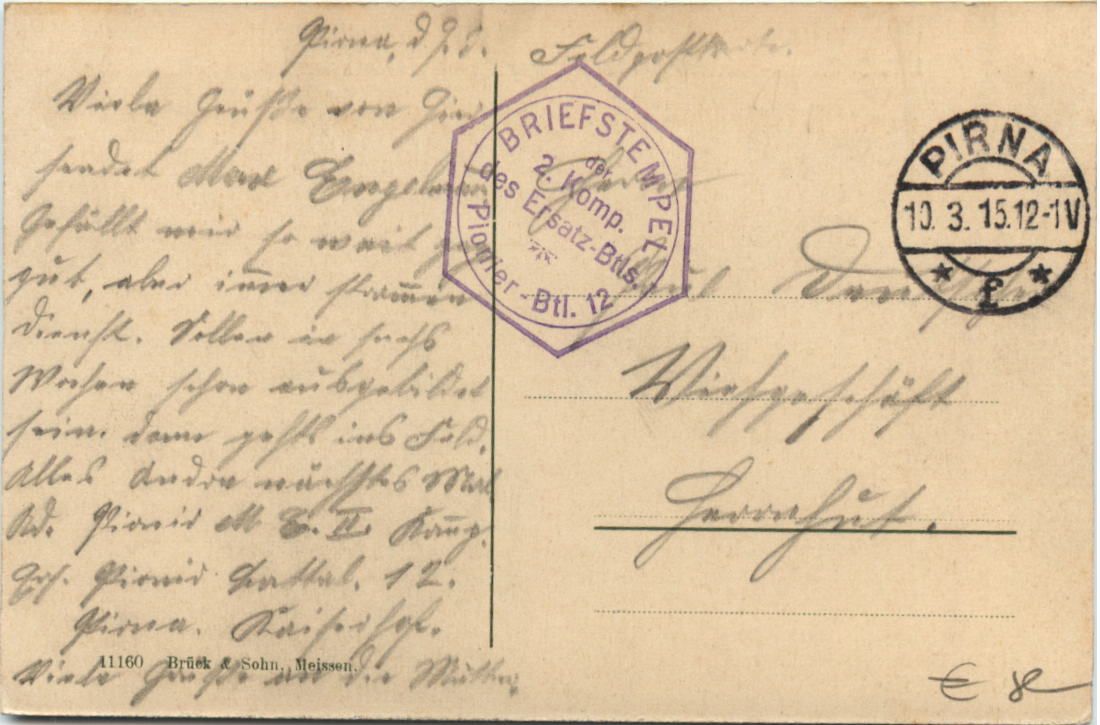 Pirna, d 9.3.
Viele Grüße von hier
sendet Max Engelmann
Gefällt mir so weit ganz
gut, aber immer strammen
Dienst. Sollen in sechs
Wochen schon ausgebildet
sein. dann gehts ins Feld.
Alles Andre nächstes Mal
Ad. Pionir M E. II. Komp.
Ers. Pionir Battal. 12.
Pirna. Kaiserhof.
Viele Grüße an die Mutter
11160 Brück & Sohn, Meissen.
Feldpostkarte.
BRIEFSTEMPEL
der
2. Komp.
des Ersatz-Btls.
Pionier-Btl. 12
PIRNA
10. 3. 15. 12-1V
* f *
Herrn
Paul
Viehgeschäft
Herrnhut.
€ 8